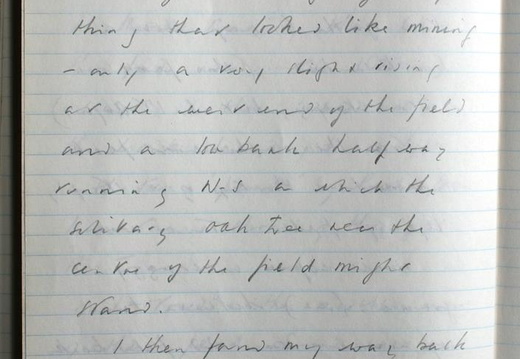 thing that looked like mining
- only a very slight rising
at the west end of the field
and a low bank half way
running N-S on which the
solitary oak tree near the
centre of the field might
stand.
I then found my way back